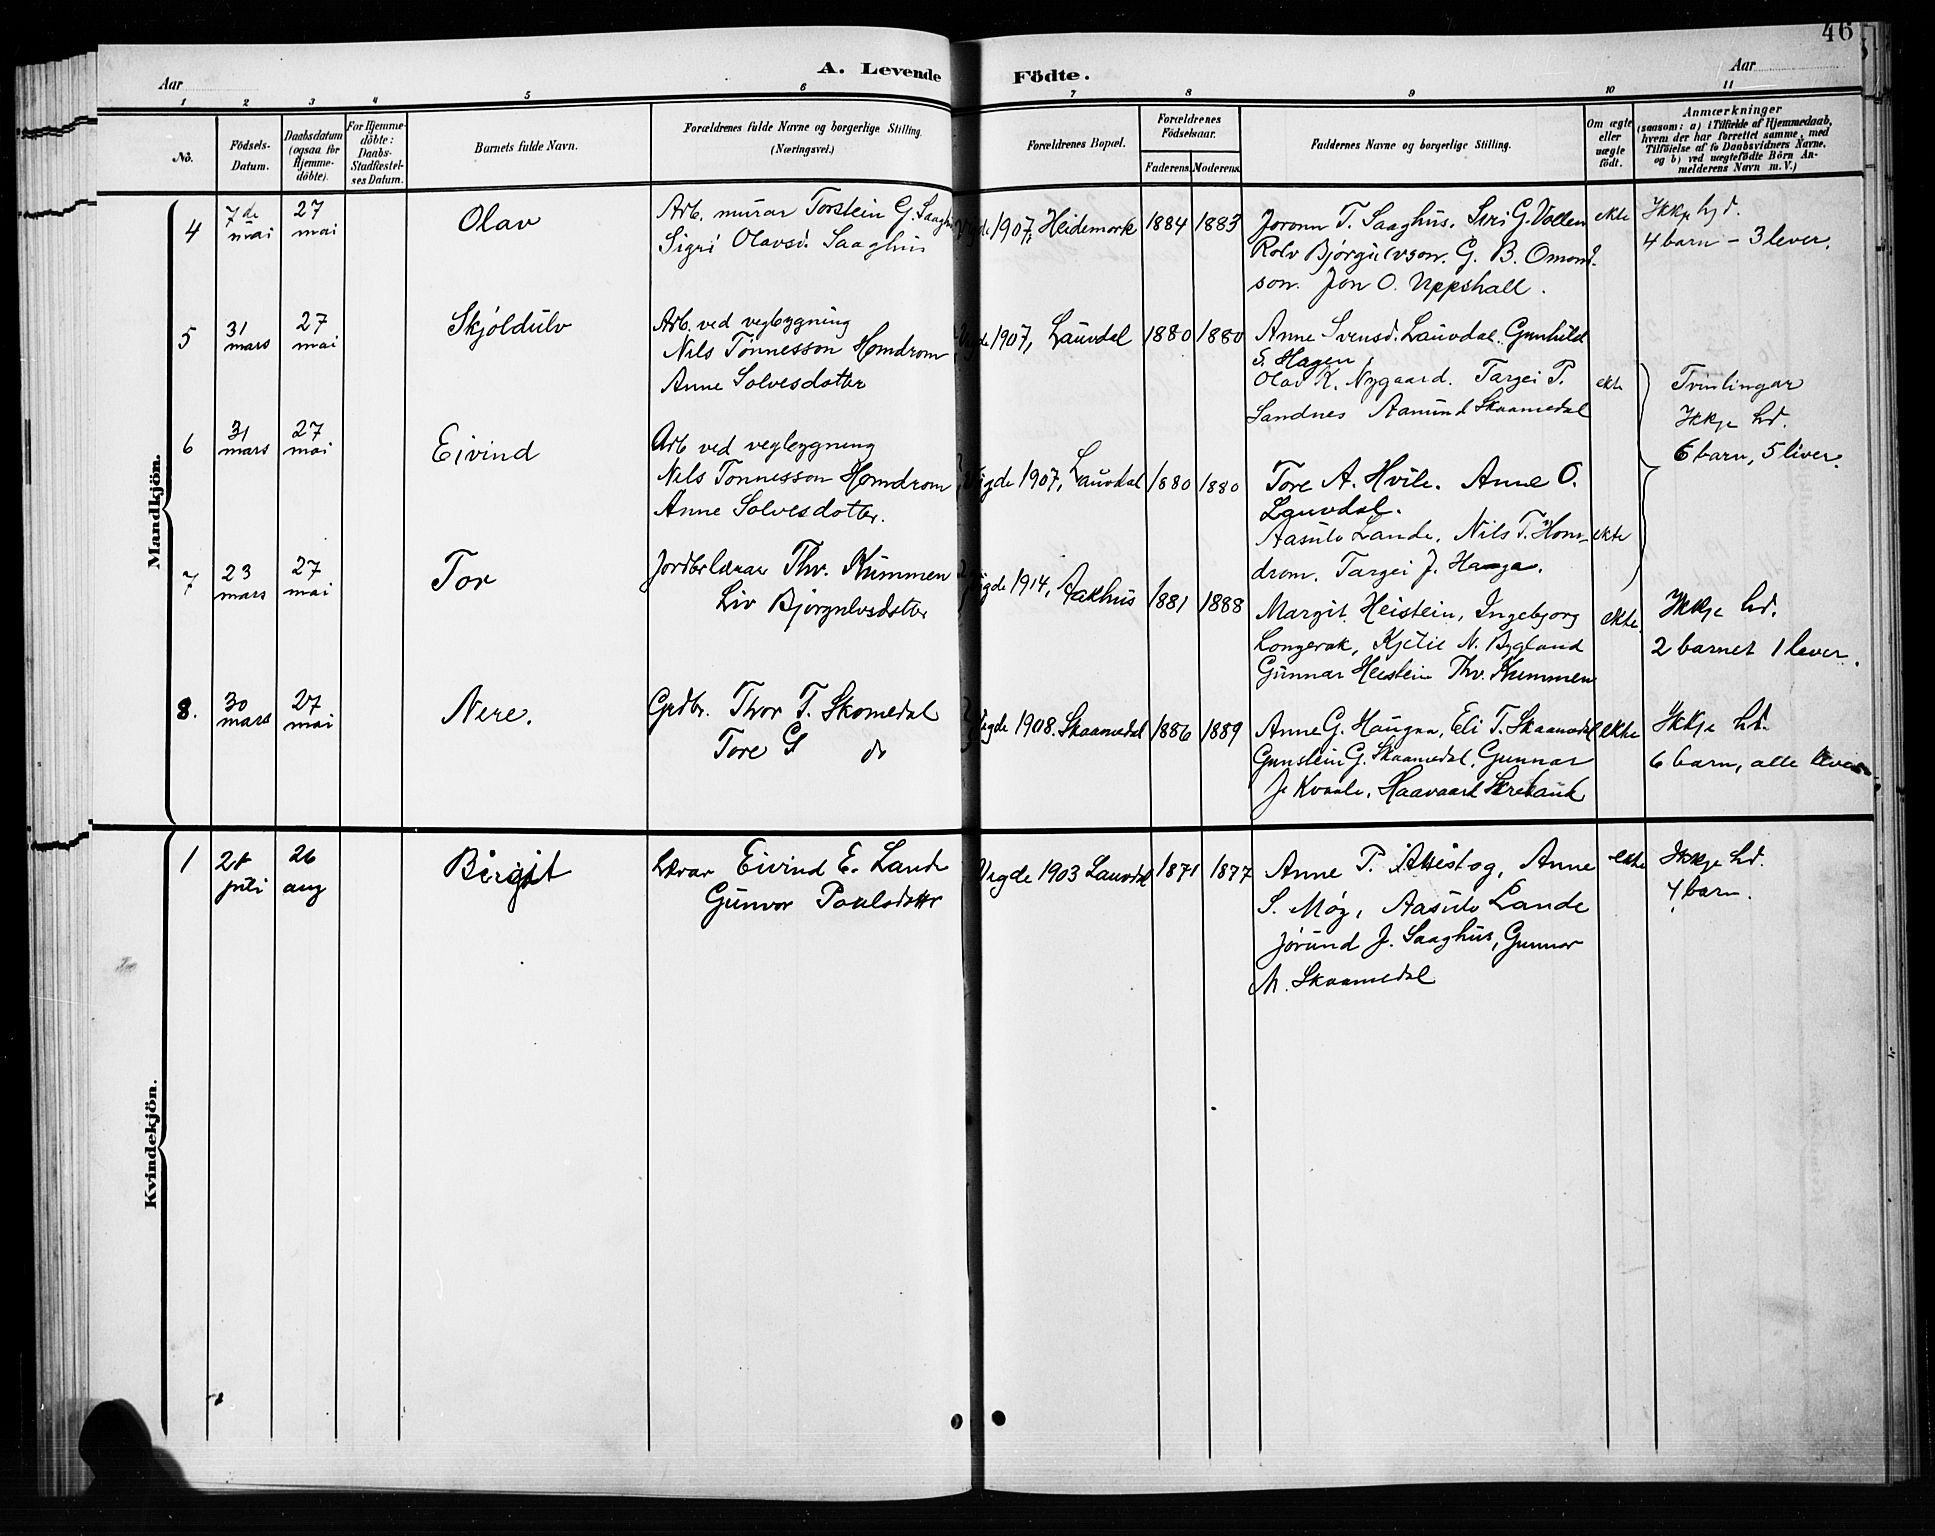 46
A. Levende Födte.
Aar
Aar
1 2 3 4 5 6 7 8 9 10 11
Nö.
Födsels-
Datum.
Daabsdatum
(ogsaa for
Hjemme-
döbte).
For Hjemme-
döbte:
Daabs-
Stadfæstel-
ses Datum.
Barnets fulde Navn.
Forældrenes fulde Navne og borgerlige Stilling.
(Næringsvei.)
Forældrenes Bopæl.
Forældrenes
Födselsaar.
Faderens. Moderens.
Faddernes Navne og borgerlige Stilling.
Om ægte
eller
uægte
födt.
Anmærkninger
(saasom: a) i Tilfælde af Hjemmedaab,
hvem der har forrettet samme, med
Tilföielse af to Daabsvidners Navne,
og b) ved uægtefödte Börn An-
melderens Navn m. V.)
Mandkjön.
4
7de
mai
27
mai
Olav
Arb. murar Torstein G. Saaghus
Sigri Olavsd. Saaghus
Vigde 1907, Heidemork
1884
1883
Joronn T. Saaghus. Siri G. Vollen
Rolv Bjørgulvson. G. B. Omond-
son. Jon O. Uppshall.
ekte
Ikkje hd.
4 barn – 3 lever.
5
31
mars
27
mai
Skjøldulv
Arb. ved vegbygning
Nils Tønnesson Homdrom
Anne Solvesdotter
Vigde 1907, Lauvdal
1880
1880
Anne Svensd. Lauvdal. Gunhild
S. Hagen,
Olav K. Nygaard. Targei T.
Sandnes Aamund Skaamedal
ekte
Tvinlingar
Ikkje hd.
6 barn, 5 liver.
6
31
mars
27
mai
Eivind
Arb ved vegbygning
Nils Tønnesson Homdrom
Anne Solvesdotter.
Vigde 1907, Lauvdal
1880
1880
Tore A. Hvile. Anne O.
Lauvdal.
Aasulv Lande, Nils T. Hom-
drom. Targei J. Haga.
ekte
7
23
mars
27
mai
Tor
Jordbr lærar Thv. Kummen
Liv Bjørgulvsdotter
Vigde 1914, Aakhus
1881
1888
Margit Heistein, Ingebjorg
Longerak, Kjetil N. Bygland
Gunnar Heistein Thv. Kummen
ekte
Ikkje hd.
2 barnet 1 lever.
8.
30
mars
27
mai
Nere.
Grdbr. Thor T. Skomedal
Tore G do
Vigde 1908. Skaamedal
1886
1889
Anne G. Haugaa, Eli T. Skaamedal
Gunstein G. Skaamedal, Gunnar
J. Kvaale, Haavaard
ekte
Ikkje hd.
6 barn, alle lever
Kvindekjön.
1
28
juli
26
aug
Birgit
Lærar Eivind E. Lande
Gunvor Paulsdottr
Vigde 1903 Lauvdal
1871
1877
Anne P. Anne
S. Møy, Aasulv Lande
Jørund J. Saaghus, Gunnar
M. Skaamedal
ekte
Ikkje hd.
4 barn.